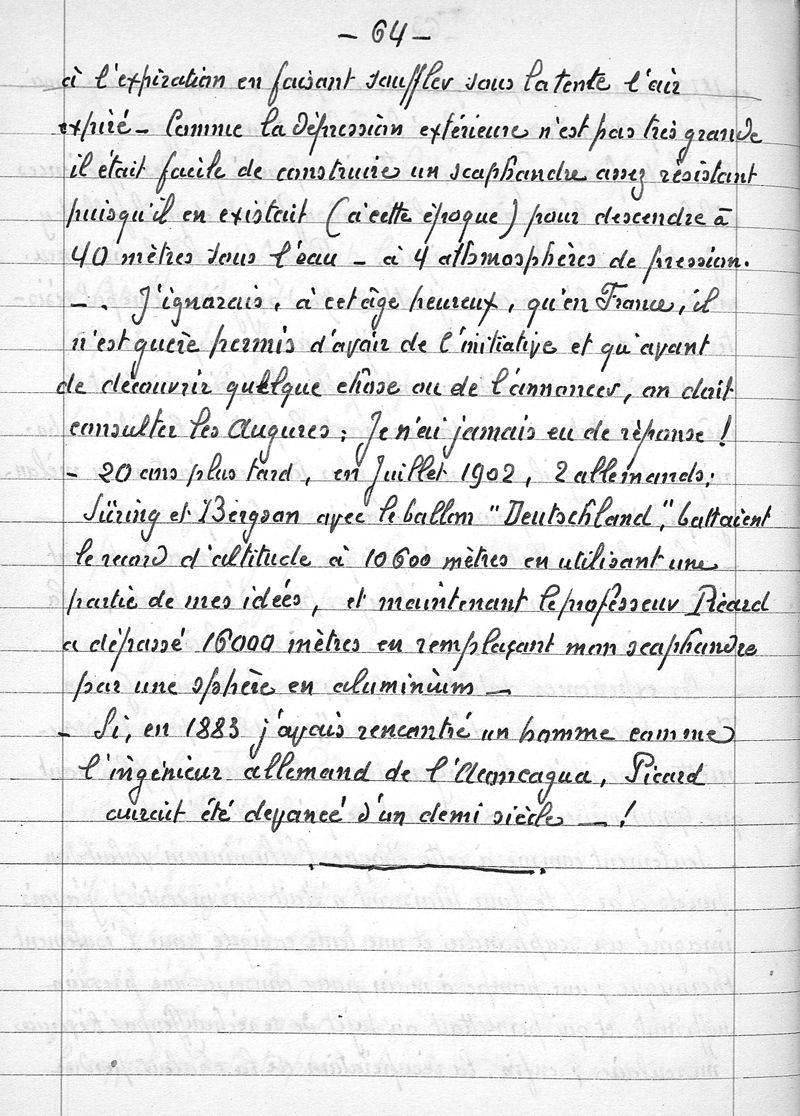 - 64 -
à l'expiration en faisant souffler sous la tente l'air
expiré - Comme la dépression extérieure n'est pas très grande
il était facile de construire un scaphandre assez résistant
puisqu'il en existait (à cette époque) pour descendre à
40 mètres sous l'eau - à 4 athmosphères de pression.
- . J'ignorais, à cet âge heureux, qu'en France, il
n'est guère permis d'avoir de l'initiative et qu'avant
de découvrir quelque chose ou de l'annoncer, on doit
consulter les Augures ; Je n'ai jamais eu de réponse !
- 20 ans plus tard, en Juillet 1902, 2 allemands ;
Süring et Bergson avec le ballon "Deutschland," battaient
le record d'altitude à 10600 mètres en utilisant une
partie de mes idées, et maintenant le professeur Picard
a dépassé 16000 mètres en remplaçant mon scaphandre
par une sphère en aluminium -
- Si, en 1883 j'avais rencontré un homme comme
l'ingénieur allemand de l'Aconcagua, Picard
aurait été devancé d'un demi siècle - !